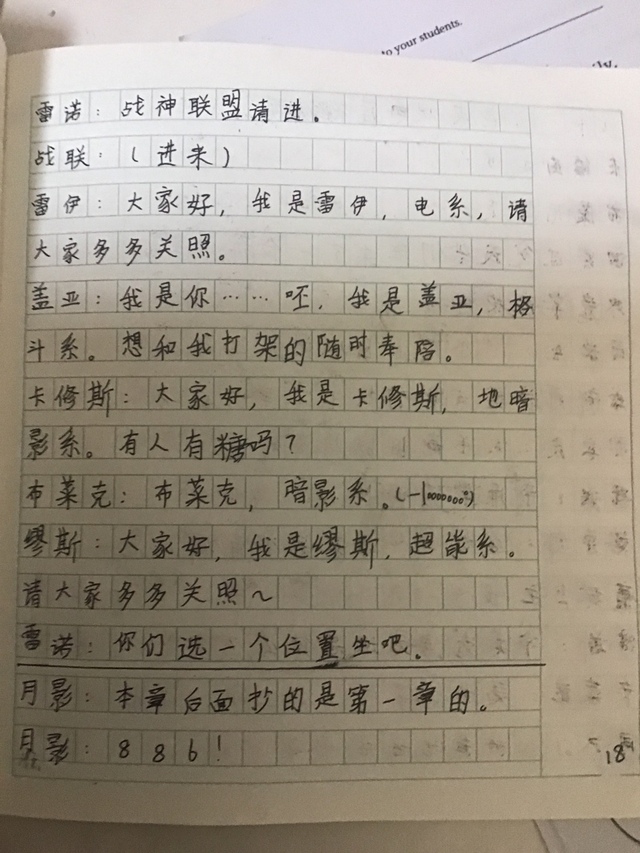 to your students.
雷诺：战神联盟请进。
战联：（进来）
雷伊：大家好，我是雷伊，电系，请
大家多多关照。
盖亚：我是你……呸，我是盖亚，格
斗系。想和我打架的随时奉陪。
卡修斯：大家好，我是卡修斯，地暗
影系。有人有糖吗？
布莱克：布莱克，暗影系。
缪斯：大家好，我是缪斯，超能系。
请大家多多关照～
雷诺：你们选一个位置坐吧。
月影：本章后面抄的是第一章的。
月影：886！
18